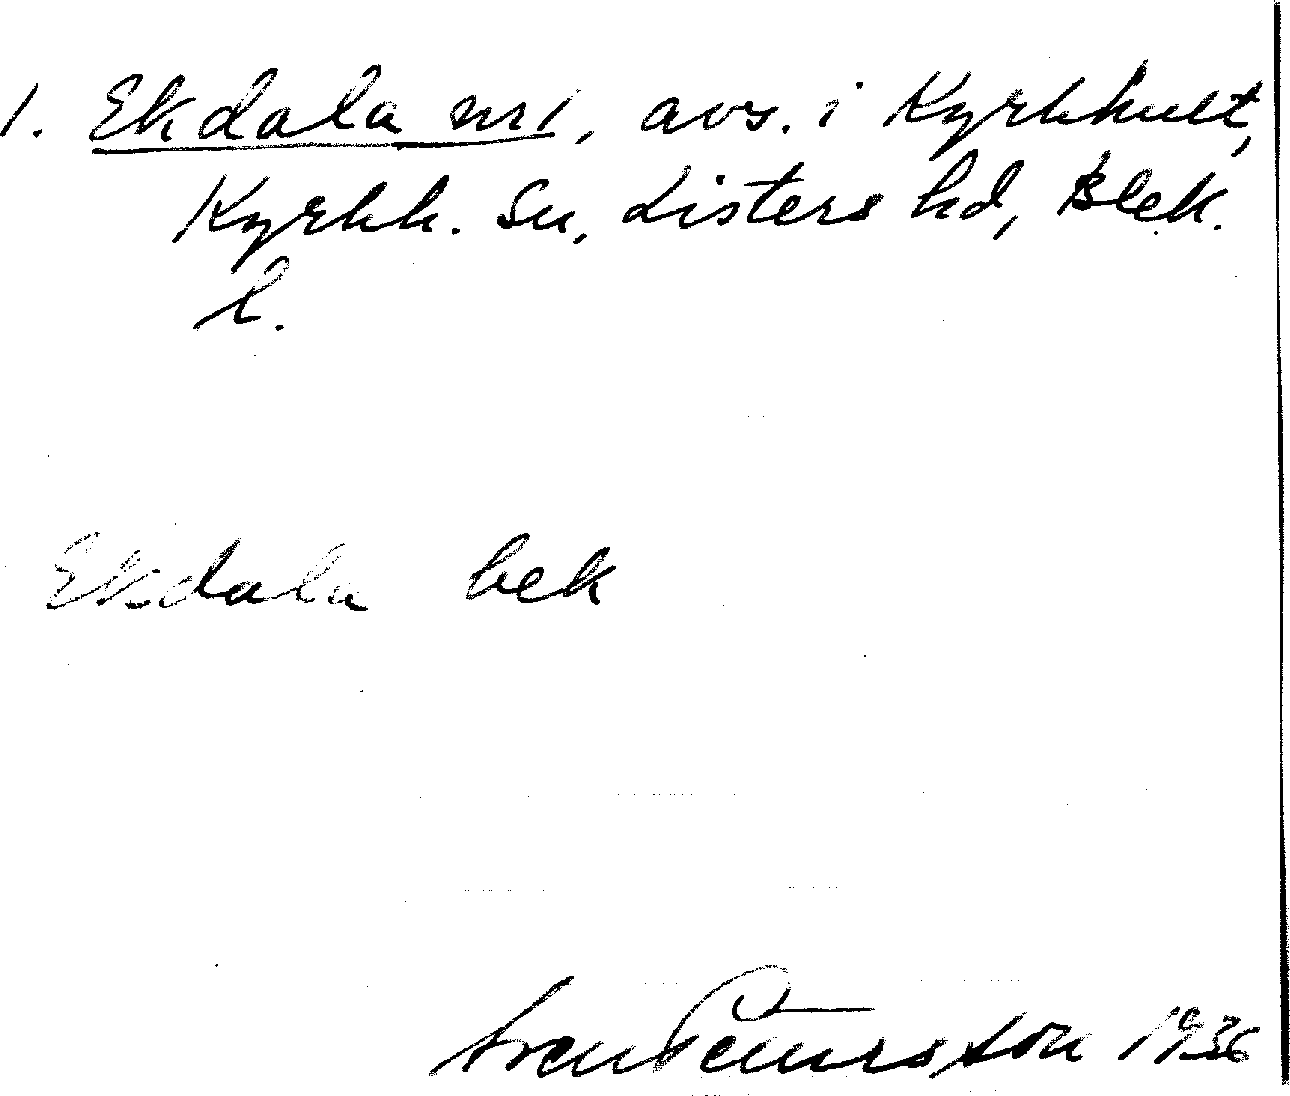 1. Ekdala nr 1, avs. i Kyrkhult,
Kyrkh. Sn, Listers hd, Blek.
l.
Ekdala bek
Sven Petersson 1936